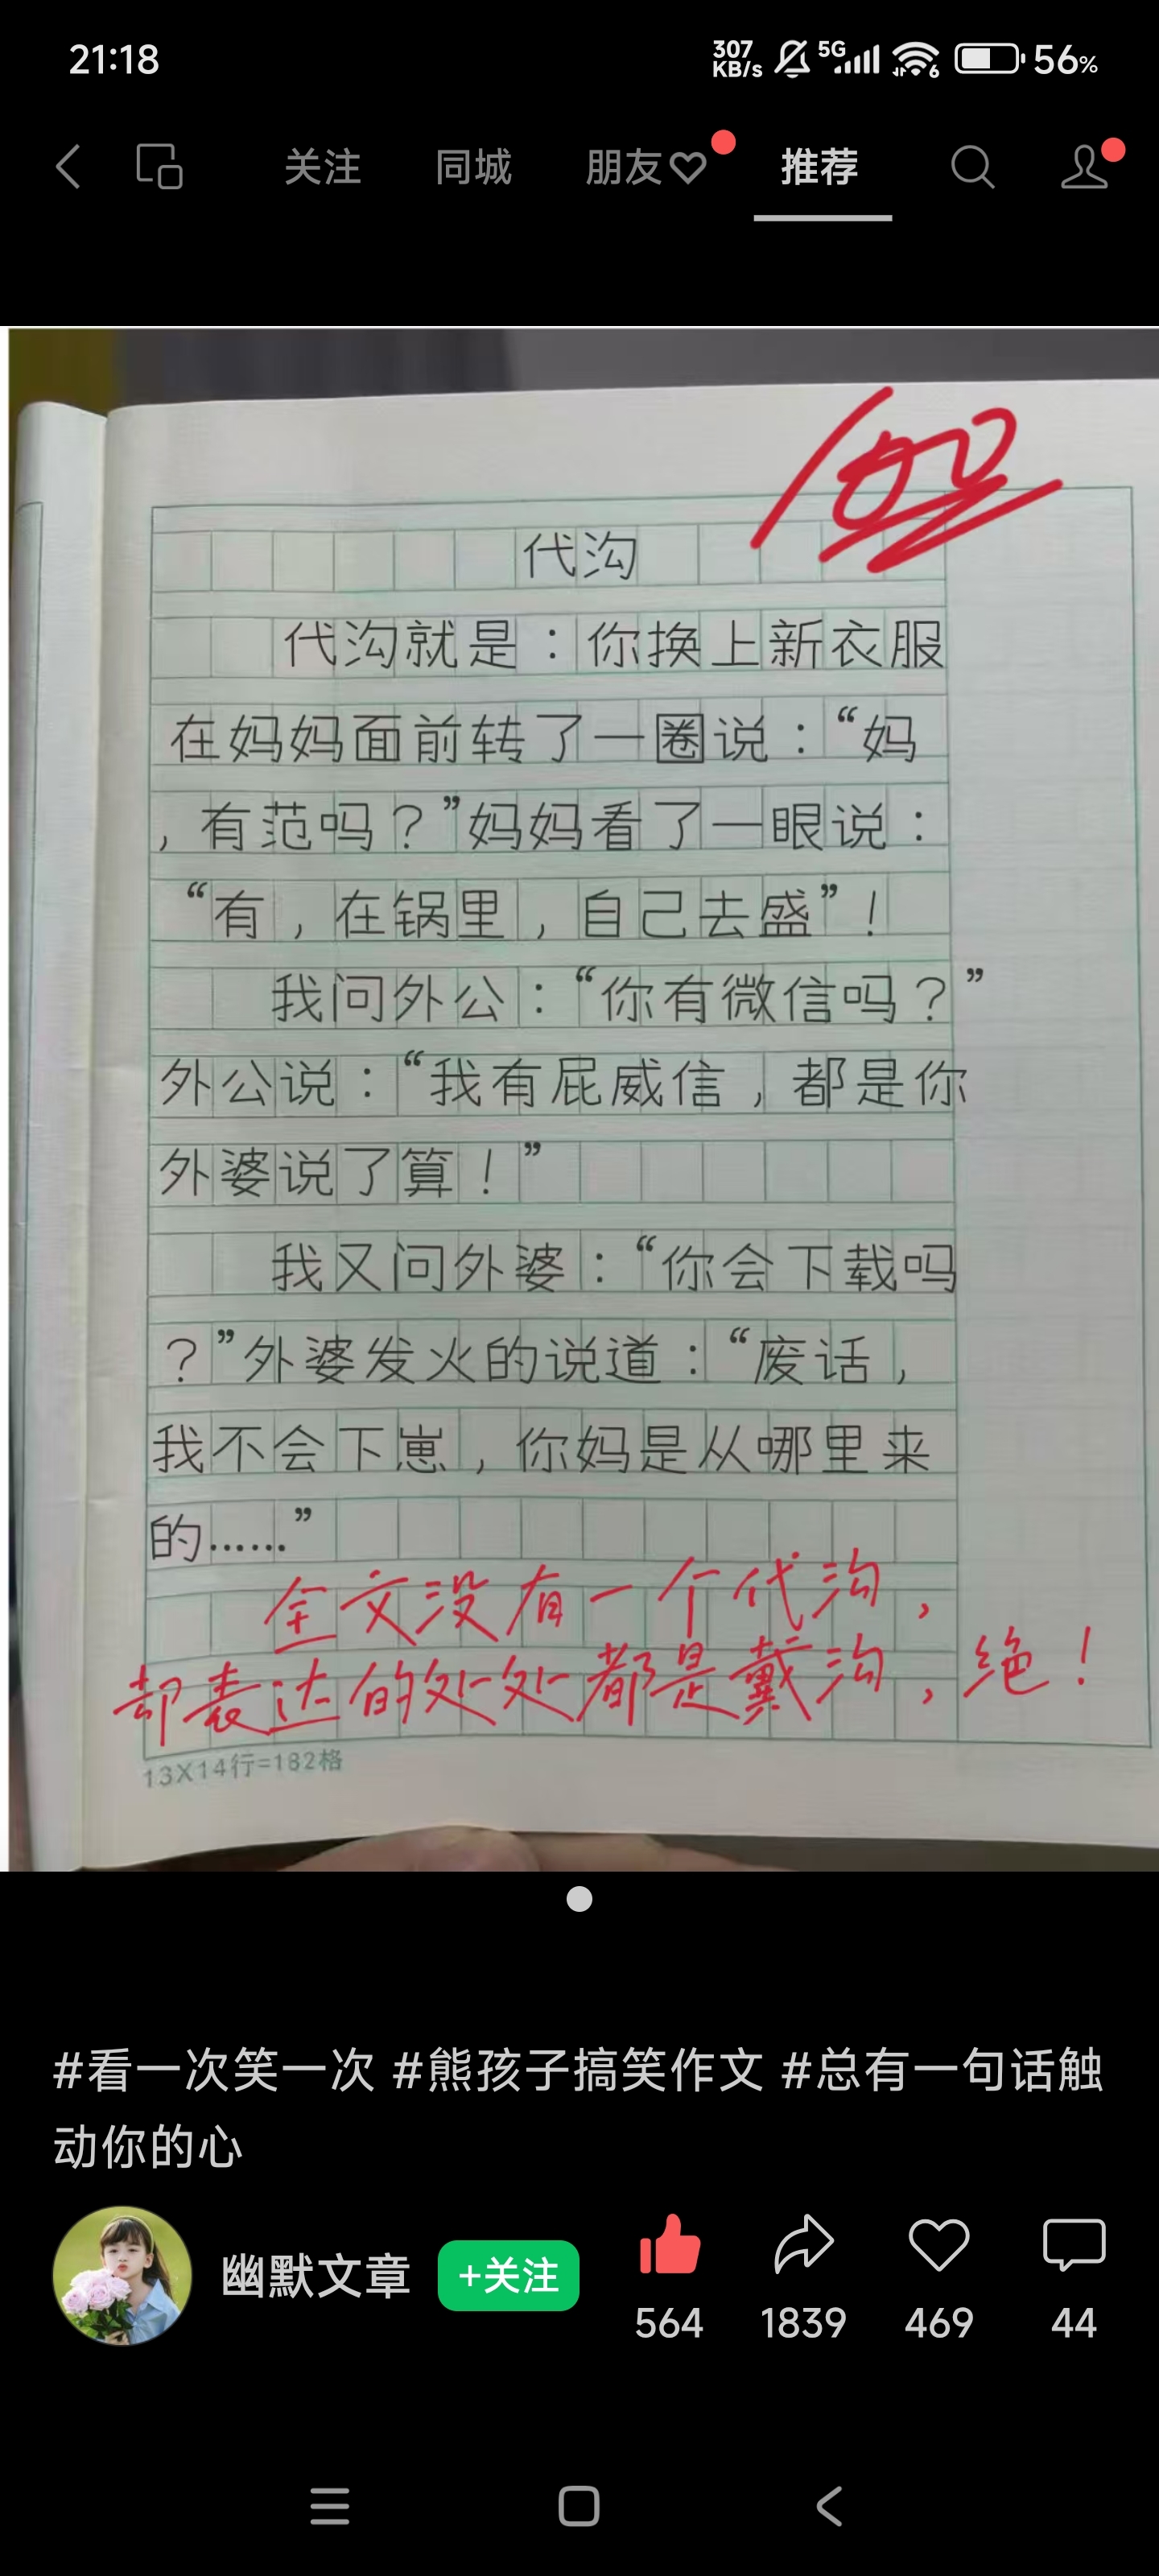 21:18
307 KB/s 5G 6 56%
关注 同城 朋友 推荐
100
代沟
代沟就是：你换上新衣服
在妈妈面前转了一圈说：“妈
，有范吗？”妈妈看了一眼说：
“有，在锅里，自己去盛”！
我问外公：“你有微信吗？”
外公说：“我有屁威信，都是你
外婆说了算！”
我又问外婆：“你会下载吗
？”外婆发火的说道：“废话，
我不会下崽，你妈是从哪里来
的……”
全文没有一个代沟，
却表达的处处都是戴沟，绝！
13X14行=182格
#看一次笑一次 #熊孩子搞笑作文 #总有一句话触
动你的心
幽默文章 +关注
564 1839 469 44